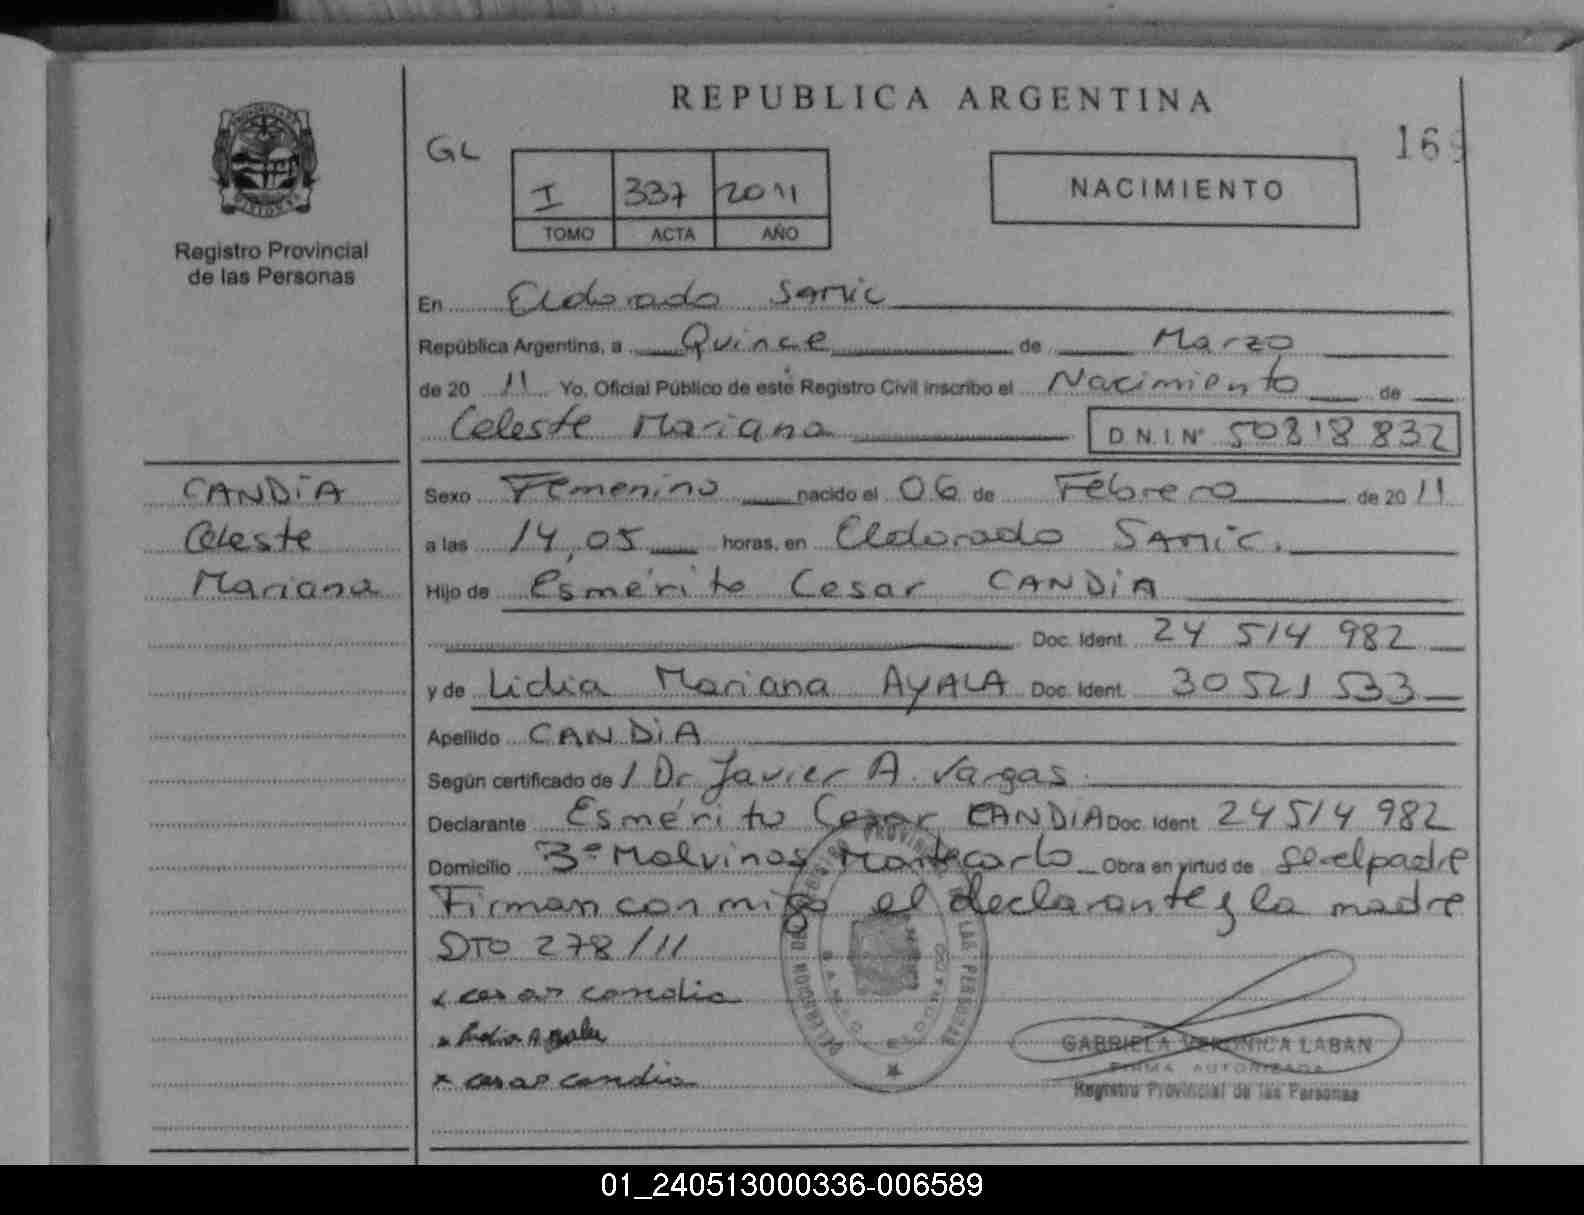 REPUBLICA ARGENTINA
169
GL
I 337 2011
TOMO ACTA AÑO
NACIMIENTO
Registro Provincial
de las Personas
En Eldorado SAMic
República Argentina, a Quince de Marzo
de 20 11 Yo, Oficial Público de este Registro Civil inscribo el Nacimiento de
Celeste Mariana D.N.I. N° 50818832
CANDiA
Celeste
Mariana
Sexo Femenino nacido el 06 de Febrero de 20 11
a las 14,05 horas, en Eldorado SAMic.
Hijo de Esmérito Cesar CANDiA
Doc. Ident. 24 514 982
y de Lidia Mariana AYALA Doc. Ident. 30 521 533
Apellido CANDiA
Según certificado de / Dr Javier A. Vargas
Declarante Esmérito Cesar CANDiA Doc. Ident. 24 514 982
Domicilio B° Malvinas Montecarlo Obra en virtud de ser el padre
Firman conmigo el declarante y la madre
DTO 278/11
x cesar candia
x Lidia A
x cesar candia
REGISTRO PROVINCIAL DE LAS PERSONAS
GABRIELA VERONICA LABAN
FIRMA AUTORIZADA
Registro Provincial de las Personas
01_240513000336-006589